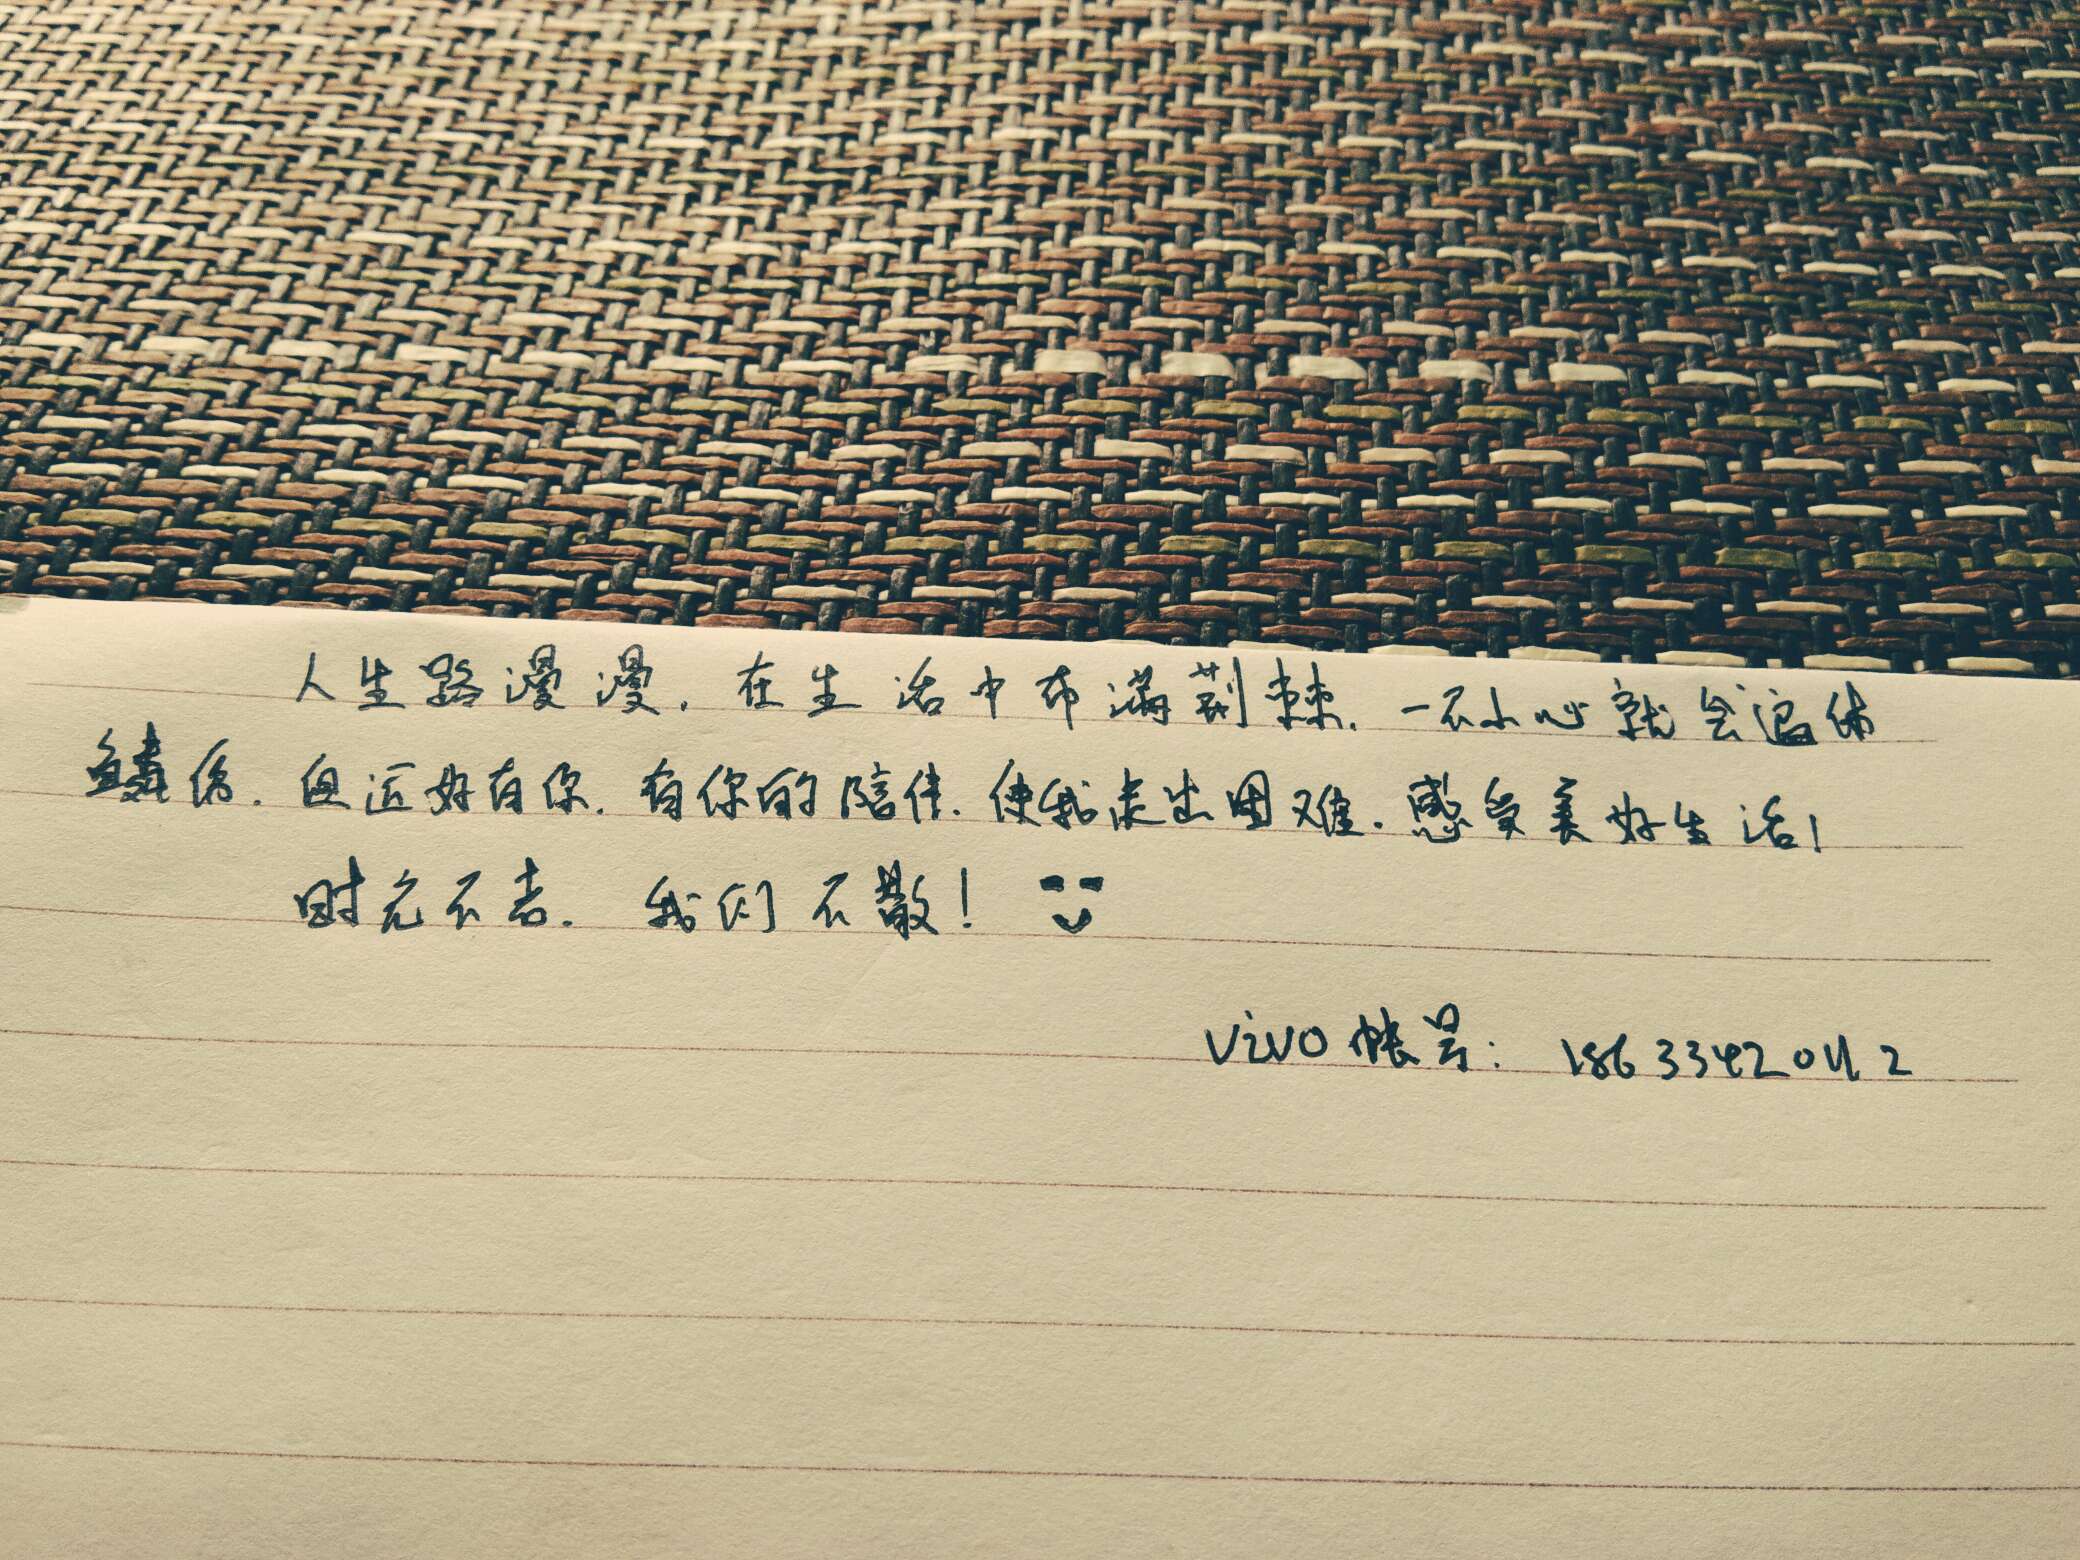 人生路漫漫,在生活中布满荆棘,一不小心就会遍体
鳞伤.但还好有你.有你的陪伴.使我走出困难.感受美好生活!
时光不老.我们不散!
vivo帐号: 18633420112